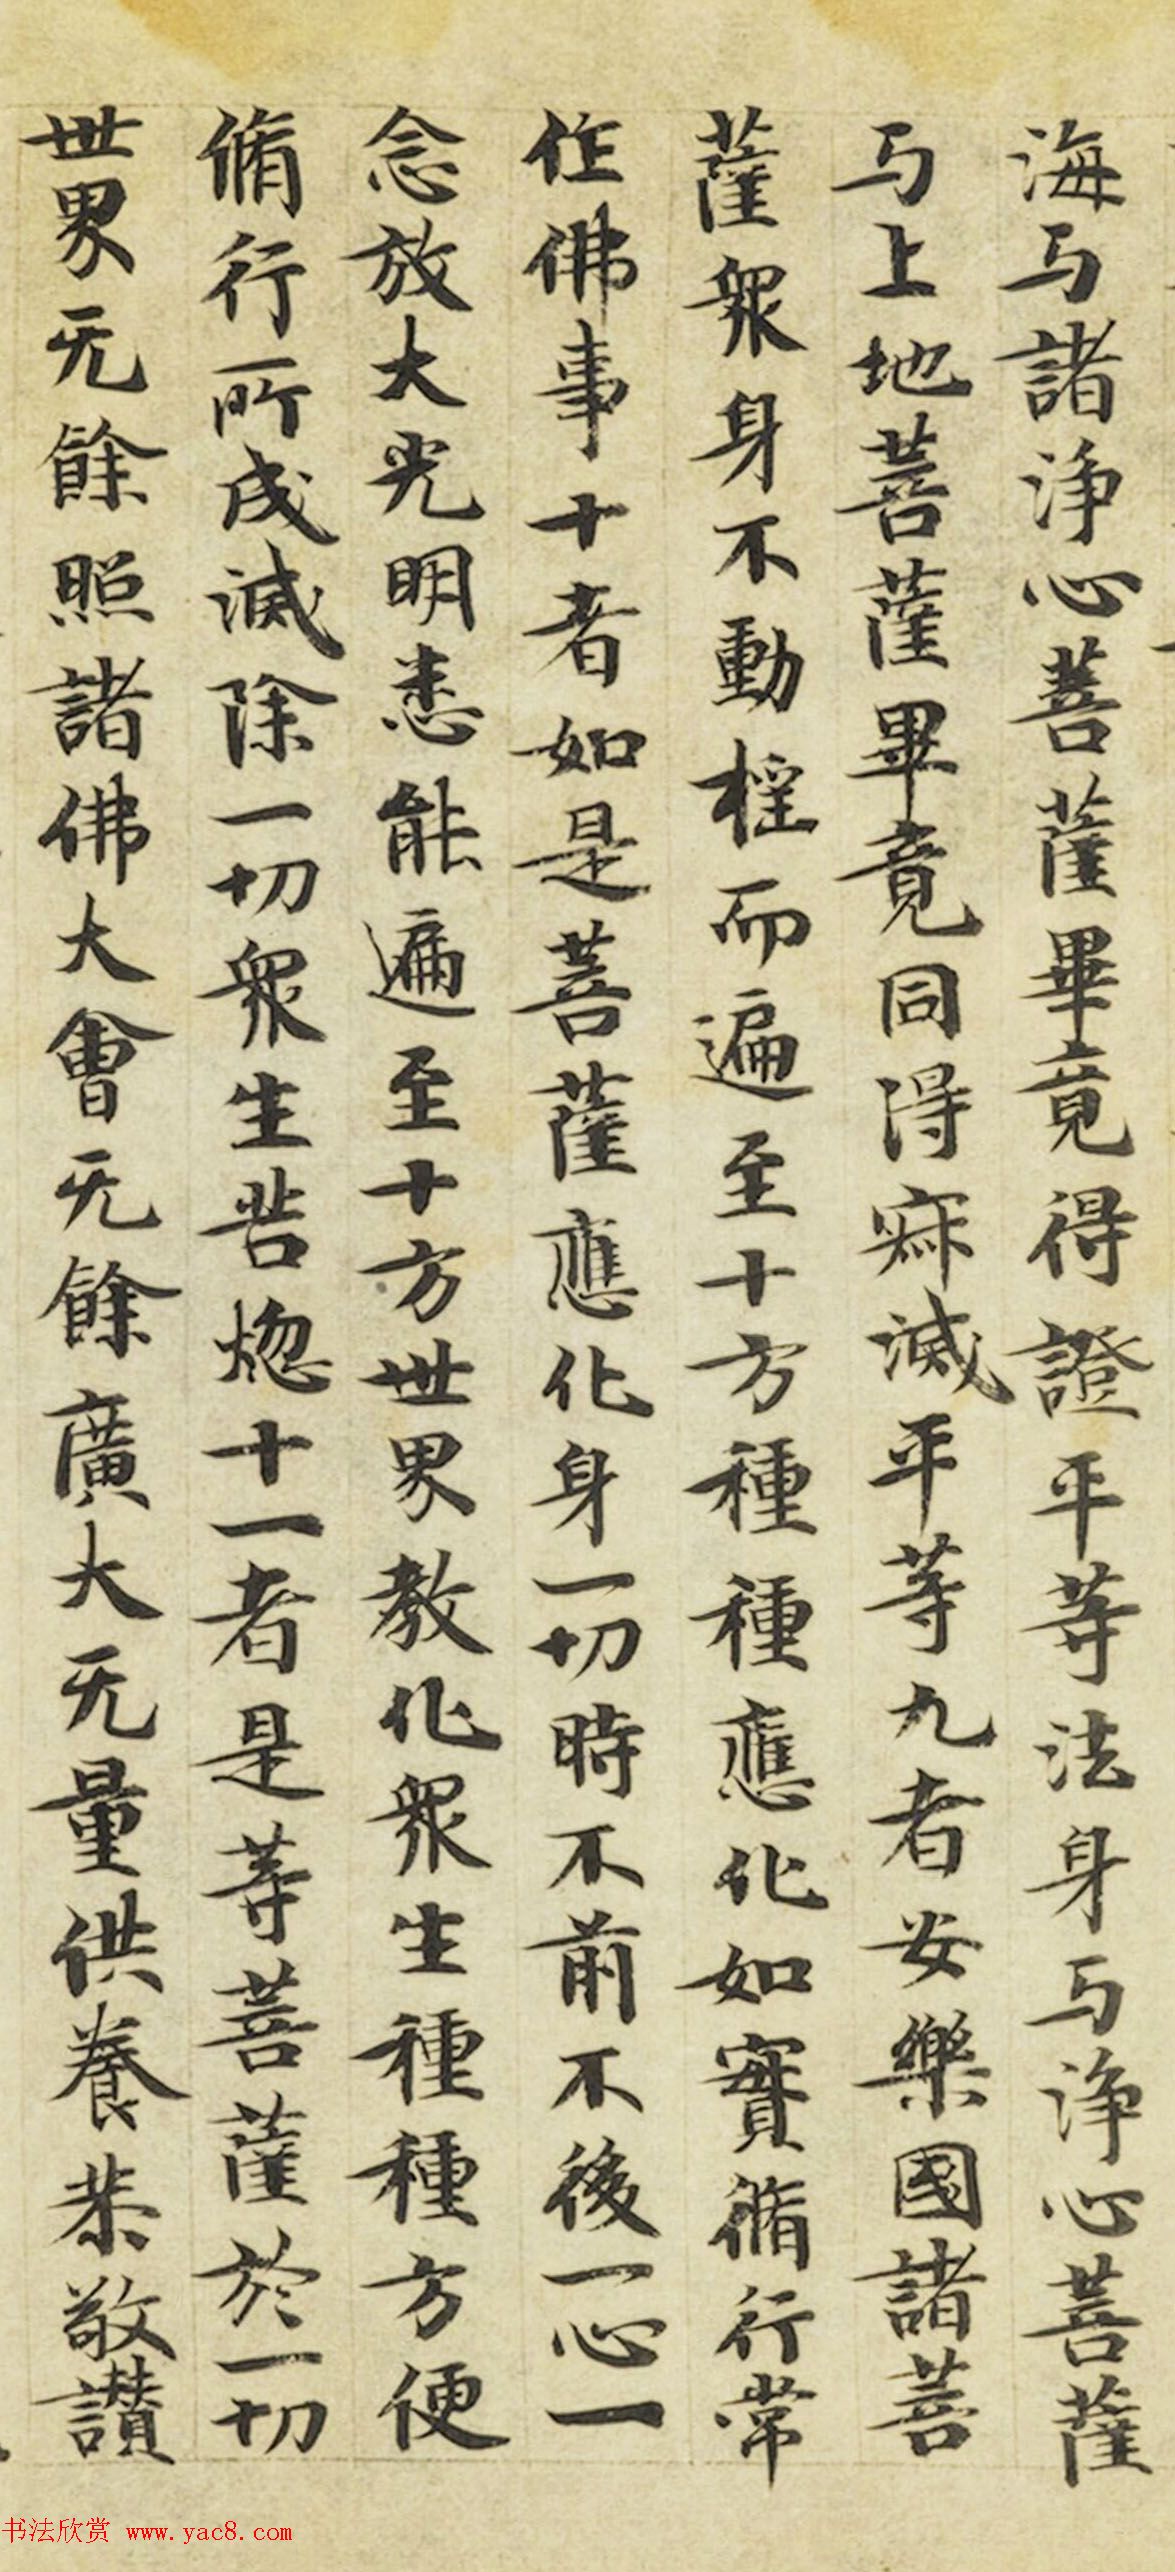 海与諸浄心菩薩畢竟得證平等法身与浄心菩薩
与上地菩薩畢竟同得寂滅平等九者安樂國諸菩
薩衆身不動摇而遍至十方種種應化如實脩行常
作佛事十者如是菩薩應化身一切時不前不後一心一
念放大光明悉能遍至十方世界教化衆生種種方便
脩行所成滅除一切衆生苦惚十一者是等菩薩於一切
世界无餘照諸佛大會无餘廣大无量供養恭敬讃
书法欣赏 www.yac8.com